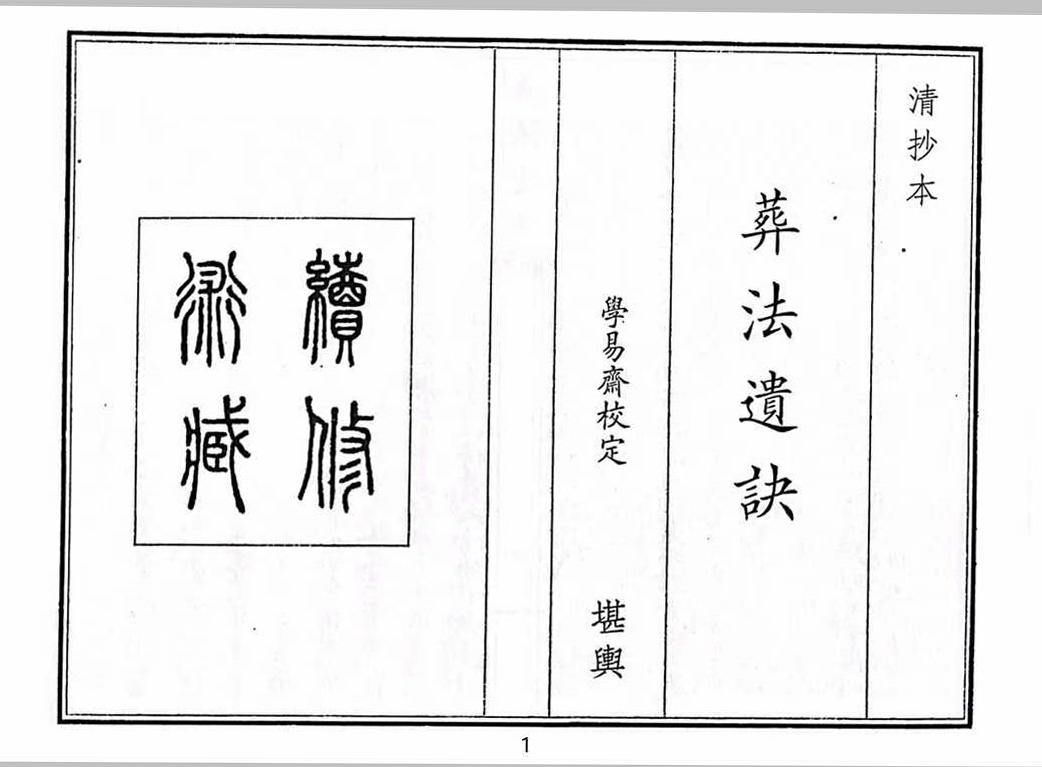 清抄本
葬法遺訣
學易齋校定
堪輿
續修
術藏
1